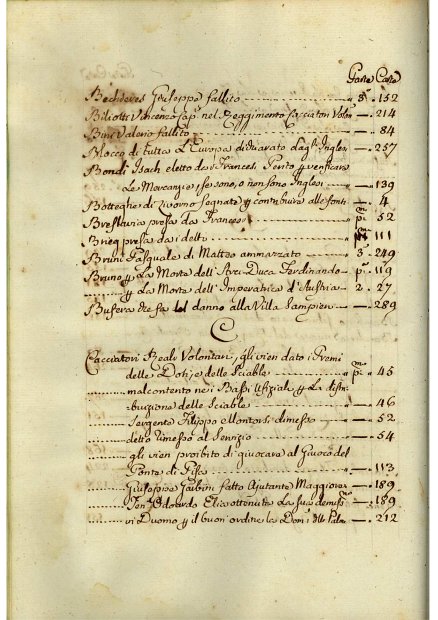 Parte Carte
Bechderes Giuseppe fallito 3 152
Biliotti Vincenzo Cap. nel Reggimento Cacciatori Volon 214
Bini Valerio fallito 84
Blocco di tutta L'Europa dichiarato dagl'Inglesi 257
Bondi Isach eletto da Francesi Perito verificare
Le Mercanzie, se sono, o non sono Inglesi 139
Botteghe di Livorno segnate contribuire alle fonti 4
Breslavia presa da Francesi p 52
Brieq presa da i detti 111
Bruni Pasquale di Matteo ammazzato 3 249
Bruno La Morte dell' Arci Duca Ferdinando p 119
La Morte dell' Imperatrice d'Austria 2 27
Bufera che fa del danno alla Villa 289
C
Cacciatori Reali Volontari, gli vien dato i Premi
delle Doti, e delle Sciable p 45
malcontento nei Bassi Ufiziali La distri-
buzione delle Sciable 46
Sergente Filippo dimesso 52
detto rimesso al Servizio 54
gli vien proibito di giuocare al Giuoco del
Ponte di Pisa 113
Giuseppe fatto Ajutante Maggiore 189
Ten. Odoardo ottenuta La sua demiss 189
in Duomo il buon ordine le 212